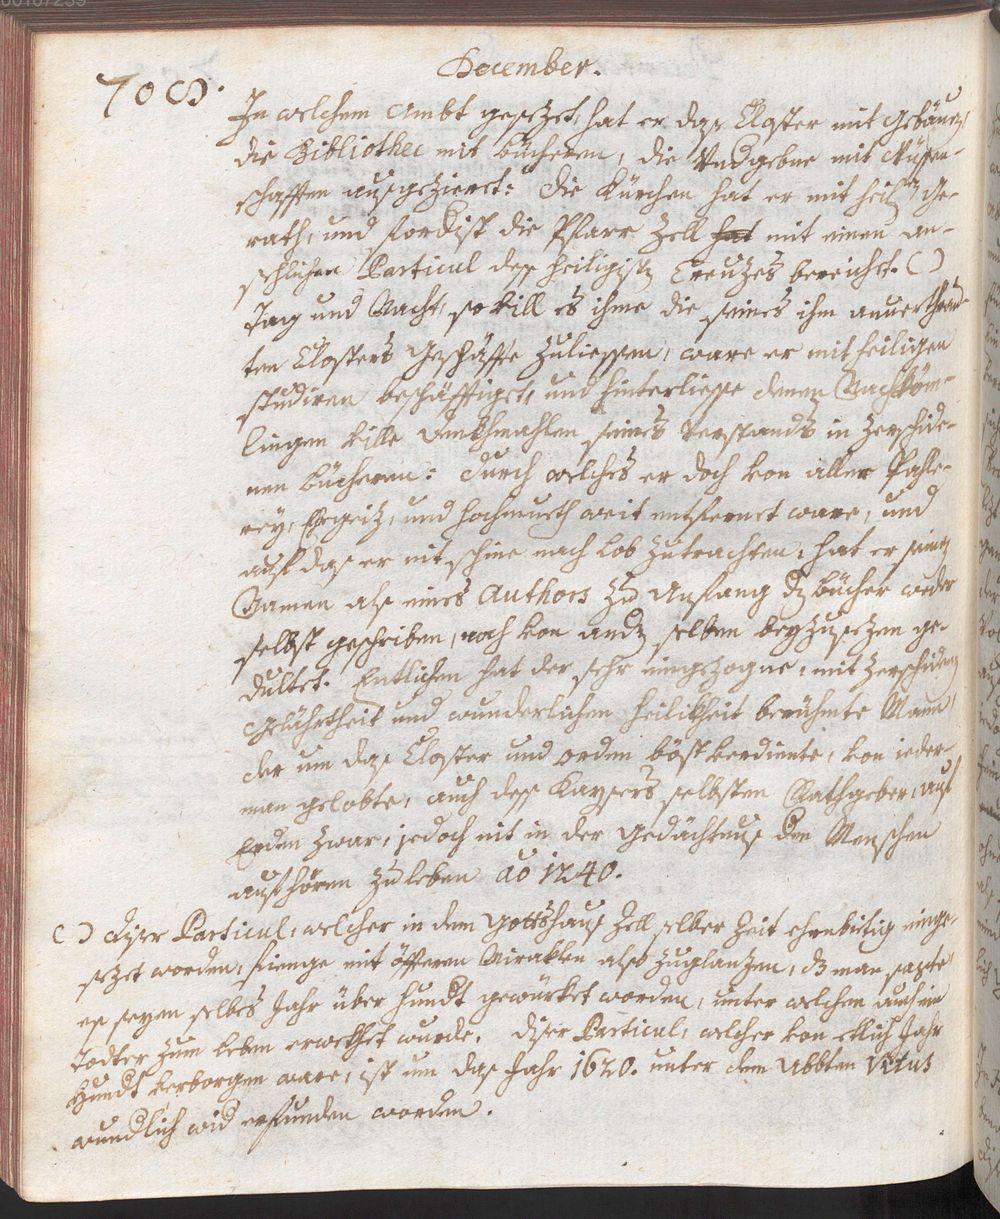 December.
708.
In welchem Ambt gesezet, hat er daß Closter mit Gebäuen,
die Bibliothec mit bücheren, die Undgebne mit Wüssen-
schafften außgezieret: die Kürchen hat er mit heil. Ge-
rath, und fordist die Pfarr Zell hat mit einen an-
sehlichen Particul deß heiligist Creutzes bereichet. ( )
Tag und Nacht, so vill es ihme die seines ihm anuerthrau-
ten Closters Geschäffte zuliessen, ware er mit heiligen
studiren beschäfftiget, und hinterliesse denen Nachköm-
lingen ville denkhmahlen seines Verstands in verschide-
nen bücheren: durch welches er doch von aller Prahle-
rey, Ehrgeiz, und hochmueth weit entfernet ware, und
auf daß er nit schine nach lob zutrachten, hat er seinen
Namen alß eines Authors zu Anfang der bücher weder
selbst geschriben, noch von andern selben beyzusezen ge-
dultet. Entlichen hat der sehr eingezogne, mit verschidener
Glährtheit und wunderlichen heilikheit berühmte Mann,
der um daß Closter und orden böst verdiente, von ieder-
man gelobte, auch deß Kaysers selbsten Rathgeber, auf
Erden zwar, jedoch nit in der gedächtnuß der Menschen
aufhören zu leben ao 1240.
( ) diser Particul, welcher in dem Gottshauß Zell selber Zeit ehrnbietig einge-
sezet worden, fienge mit öffteren Miraklen also zuglanzen, dz man sagte,
es seyen selbes Jahr über hundt gewürket worden, unter welchen auch ein
todter zum leben erwekhet wurde. diser Particul, welcher von etlich Jahr
hundt verborgen ware, ist um daß Jahr 1620. unter dem Abbten Vitus
wundlich wid erfunden worden.
00107259